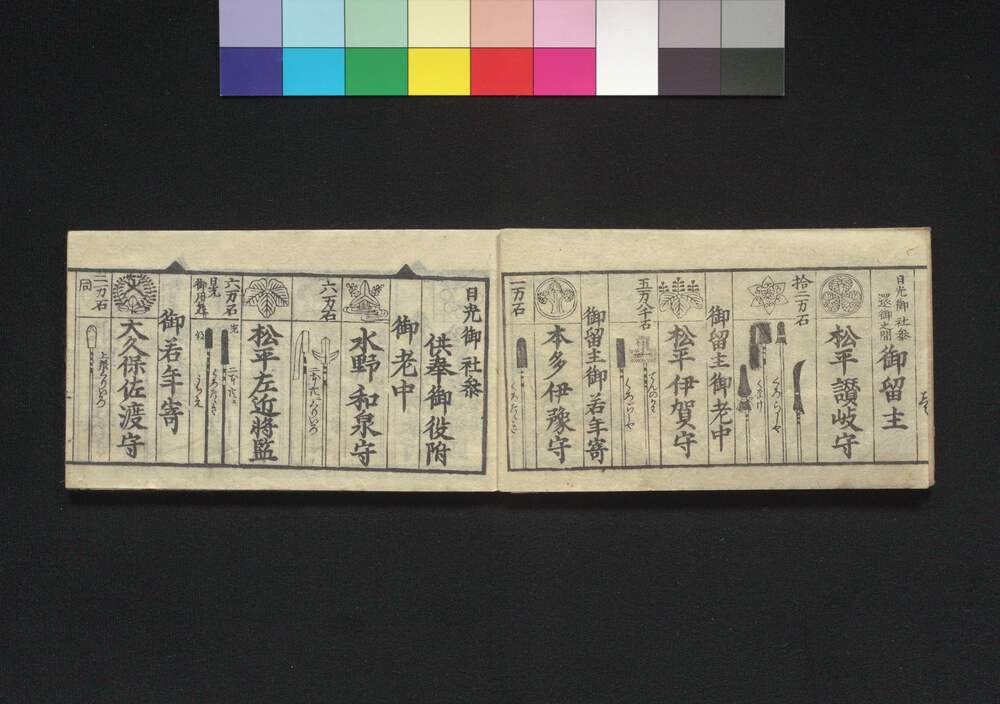 日光御社参
還御之間
御留主
松平讃岐守
拾二万石
くろらしや
御留主御老中
松平伊賀守
五万八千石
くろらしや
御留主御若年寄
本多伊豫守
一万石
日光御社参
供奉御役附
御老中
水野和泉守
六万石
松平左近将監
六万石
日光
御用掛
御若年寄
大久保佐渡守
二万石
同